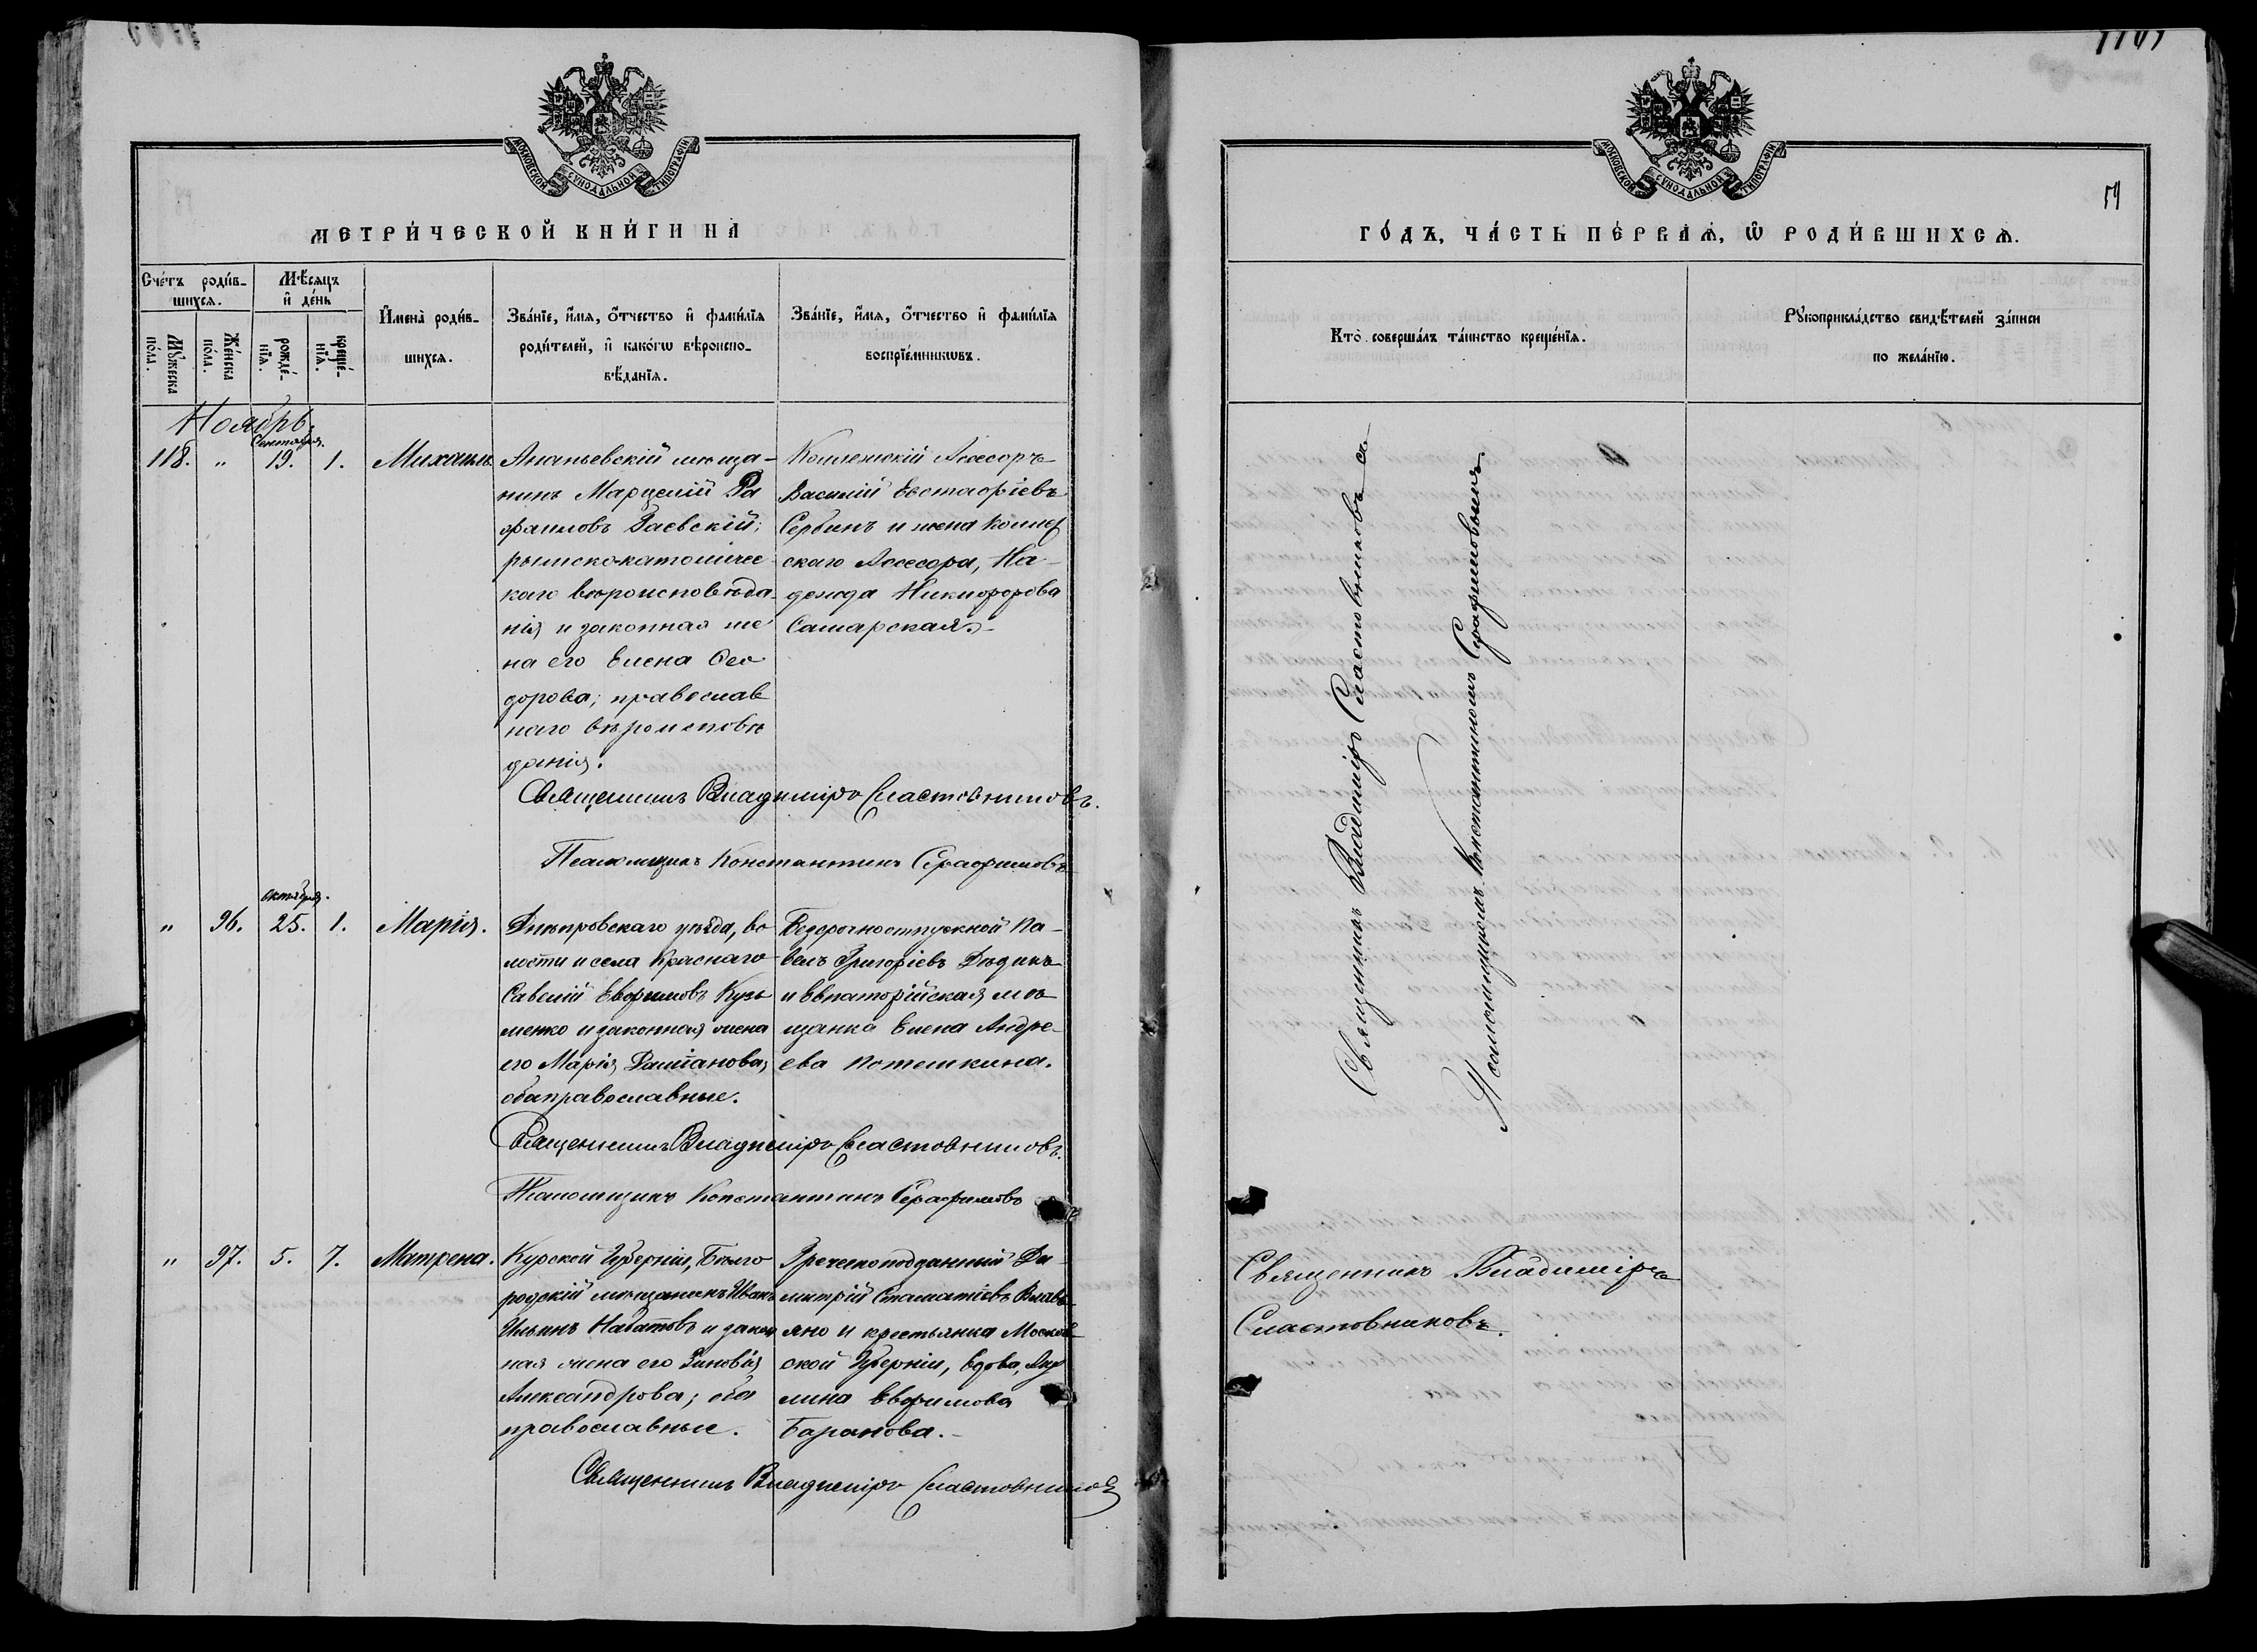 МОСКОВСКОЙ СУНОДАЛЬНОЙ ТИПОГРАФІИ
МЕТРИ́ЧЕСКОЙ КНИ́ГИ НА
Сче́тъ роди́в-
шихся.
Мѣ́сяцъ
и҆ де́нь
Мꙋ́жеска
по́ла.
Же́нска
по́ла.
рожде́-
нїѧ.
креще́-
нїѧ.
И҆мена̀ роди́в-
шихсѧ.
Зва́нїе, и҆́мѧ, ѻ҆́тчество и҆ фами́лїѧ
роди́телей, и҆ како́гѡ вѣроиспо-
вѣ́данїѧ.
Зва́нїе, и҆́мѧ, ѻ҆́тчество и҆ фами́лїѧ
воспрїе́мникѡвъ.
Ноябрь.
Сентября.
118. " 19. 1. Михаилъ
Ананьевскій мѣща-
нинъ Марцелій Ра
фаиловъ Гаевскій;
римско-католичес
каго вѣроисповѣда-
нія и законная же
на его Елена Ѳео
дорова; православ
наго вѣроисповѣ
данія.
Коллежскій Ассесоръ
Василій Евстафіевъ
Сербинъ и жена Коллеж
скаго Ассесора, На-
дежда Никифорова
Самарская.
Священникъ Владиміръ Сластовниковъ.
Псаломщикъ Константинъ Серафимовъ
октября.
" 96. 25. 1. Марія.
Днѣпровскаго уѣзда, во
лости и села Краснаго
Савелій Евфимовъ Кузь
менко и законная жена
его Марія Даміанова,
оба православные.
Безсрочноотпускной Па-
велъ Григоріевъ Дѣдикъ
и Евпаторійская мѣ
щанка Елена Андре-
ева Потемкина.
Священникъ Владиміръ Сластовниковъ.
Псаломщикъ Константинъ Серафимовъ
" 97. 5. 7. Матрена.
Курской Губерніи, Бѣлго
родскій мѣщанинъ Иванъ
Ильинъ Набатовъ и закон
ная жена его Зиновія
Александрова; оба
православные.
Греческоподданный Ди-
митрій Стаматіевъ
и крестьянка Москов
ской Губерніи, вдова,
Евфимова
Баранова.
Священникъ Владиміръ Сластовниковъ
МОСКОВСКОЙ СУНОДАЛЬНОЙ ТИПОГРАФІИ
ГО́ДЪ, ЧА́СТЬ ПЕ́РВАѦ, Ѡ҆ РОДИ́ВШИХСѦ.
Кто̀ соверша́лъ та́инство креще́нїѧ.
Рꙋкоприкла́дство свидѣ́телей за́писи
по жела́нїю.
Священникъ Владиміръ Сластовниковъ съ
Псаломщикомъ Константиномъ Серафимовымъ.
Священникъ Владиміръ
Сластовниковъ.